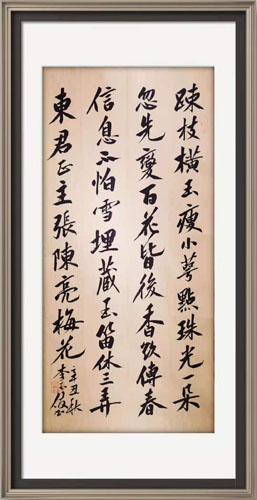 疎枝橫玉瘦小萼點珠光一朵
忽先變百花皆後香欲傳春
信息不怕雪埋藏玉笛休三弄
東君正主張陳亮梅花
辛丑秋